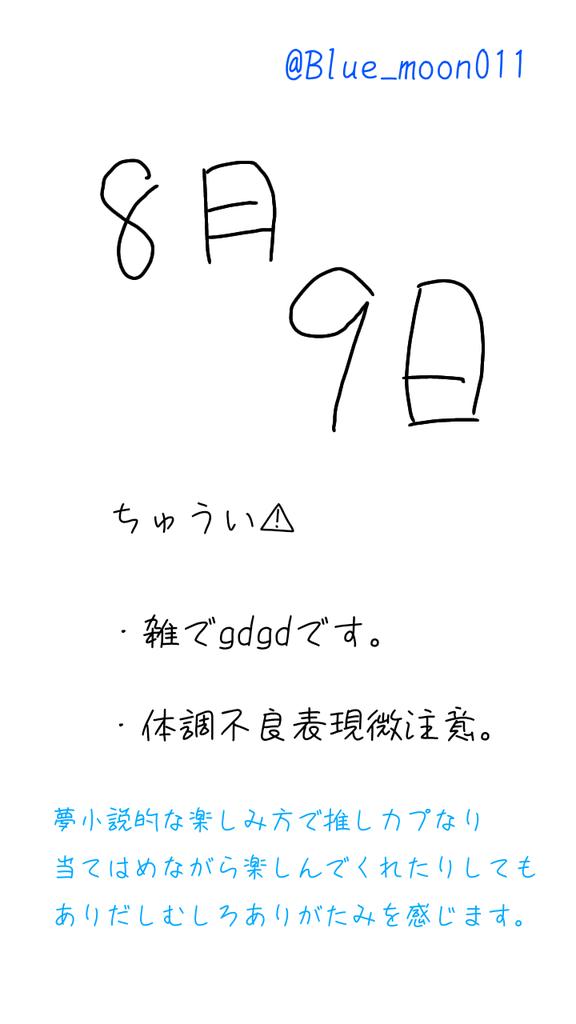 @Blue_moon011
8月
9日
ちゅうい⚠
・雑でgdgdです。
・体調不良表現微注意。
夢小説的な楽しみ方で推しカプなり
当てはめながら楽しんでくれたりしても
ありだしむしろありがたみを感じます。